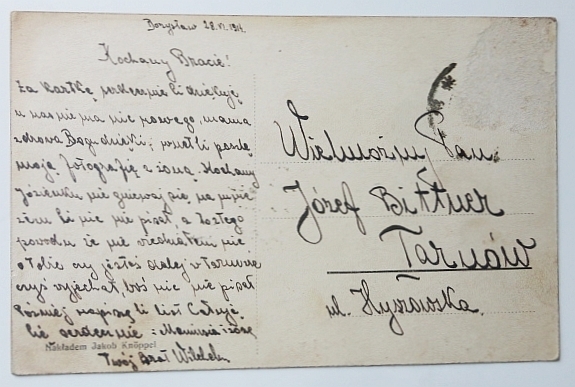 Borysław 28.VI.1911.
Kochany Bracie!
Za kartkę serdecznie Ci dziękuję
u nas nie ma nic nowego, mama
zdrowa Bogu dzięki; wnet Ci poszlę
moją fotografię z żoną. Kochany
Józieńku nie gniewaj się na mnie
żem Ci nic nie pisał, a z tego
powodu że nie wiedziałem nic
o Tobie czy jesteś dalej w Tarnowie
czyś wyjechał, boś nic nie pisał
Później napiszę Ci list Całuję
Cię serdecznie z Mamusią i żoną
Twój Brat
Nakładem Jakob Knöppel
Wielmożny Pan
Józef Bittner
Tarnów
ul.